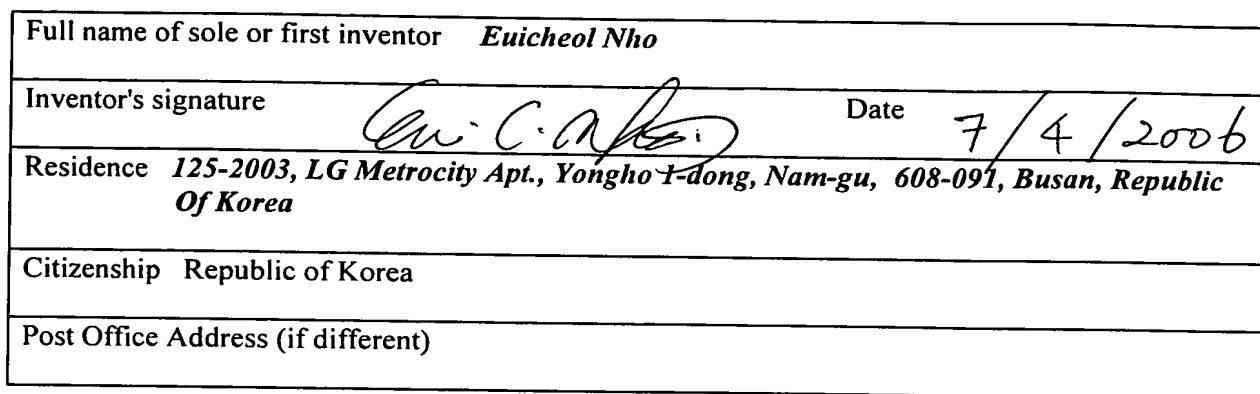 Full name of sole or first inventor Euicheol Nho
Inventor's signature Date 7/4/2006
Residence 125-2003, LG Metrocity Apt., Yongho 1-dong, Nam-gu, 608-091, Busan, Republic
Of Korea
Citizenship Republic of Korea
Post Office Address (if different)